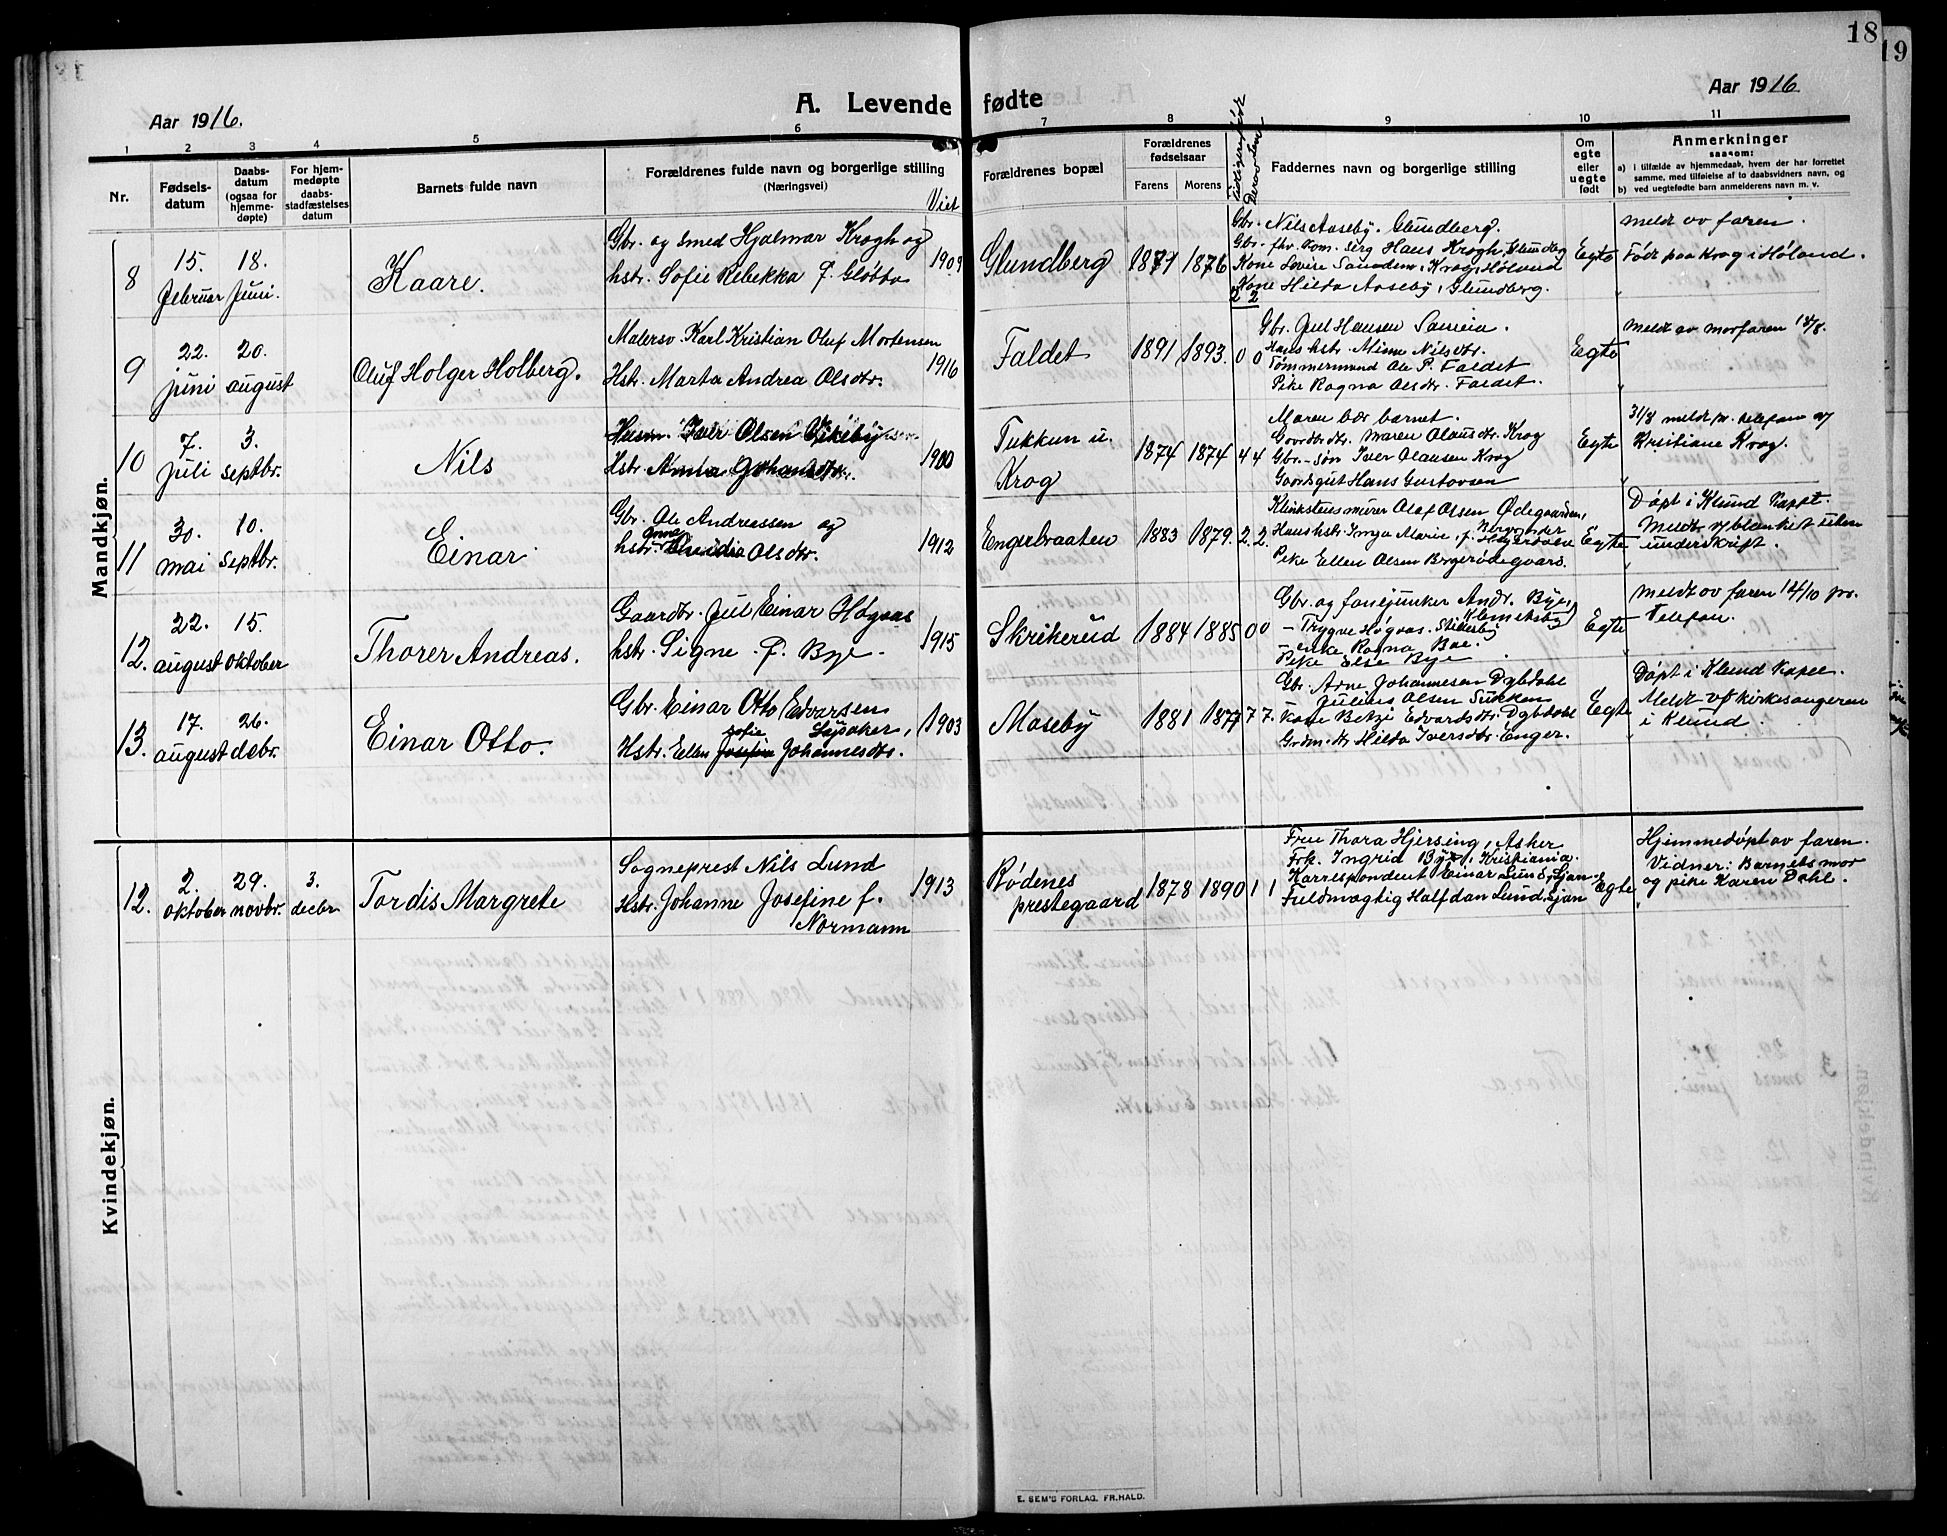 18
19
Aar 1916.
A. Levende fødte
Aar 1916.
1 2 3 4 5 6 7 8 9 10 11
Nr.
Fødsels-
datum
Daabs-
datum
(ogsaa for
hjemme-
døpte)
For hjem-
medøpte
daabs-
stadfæstelses
datum
Barnets fulde navn
Forældrenes fulde navn og borgerlige stilling
(Næringsvei)
Viet
Forældrenes bopæl
Forældrenes
fødselsaar
Farens Morens
Faddernes navn og borgerlige stilling
Om
egte
eller
uegte
født
Anmerkninger
saasom:
a) i tilfælde av hjemmedaab, hvem der har forrettet
samme, med tilføielse af to daabsvidners navn, og
b) ved uegtefødte barn anmelderens navn m. v.
Mandkjøn.
8
15.
Februar
18.
Juni.
Kaare.
Gbr. og smed Hjalmar Krogh og
hstr. Sofie Rebekka f. Gløtta
1909
Glundberg
1871 1876
2 2
Gbr. Nils Aaseby. Glundberg.
Gbr. fhv. kom. serg Hans Krogh, Glundbg
Kone Lovise Sanden, Krog, Høland
Kone Hilda Aaseby, Glundberg.
Egte
Meldt av faren.
Født paa Krog i Høland.
9
22.
juni
20.
august
Oluf Holger Holberg.
Malersv. Karl Kristian Oluf Mortensen
Hstr. Marta Andrea Olsdtr.
1916
Faldet
1891 1893. 0 0
Gbr. Juel Hansen Sameia.
Hans hstr. Mina Nilsdtr.
Tømmermand Ole P. Faldet
Pike Ragna Olsdtr. Faldet.
Egte
Meldt av morfaren 18/8.
10
7.
Juli
3.
septbr.
Nils
Husm. Iver Olsen Vikeby
Hstr. Anna Johansdtr.
1900
Tukkun u.
Krog
1874 1874 4 4
Maren bær barnet.
Goordbr.dtr. Maren Olausdtr. Krog
Gbr.-søn Iver Olausen Krog
Goordsgut Hans Gustavsen
Egte
31/8 meldt pr. telefon af
Kristiane Krog.
11
30.
mai
10.
Septbr.
Einar.
Gbr. Ole Andreassen og
hstr. Olsdtr.
1912
Engerbraaten
1883 1879. 2. 2.
Klinkstensmurer Olaf Olsen Ødegaarden,
Hans hstr Inga Marie, f.
Pike Ellen Olsen Borgerødegaard.
Egte
Døpt i Klund Kapel.
Meldt v/ blanket uten
underskrift.
12.
22.
august
15.
oktober
Thorer Andreas.
Gaardbr. Juel Einar Høgaas
hstr. Signe f. Bye.
1915
Skrikerud
1884 1885 0 0
Gbr. og fanejunker Andr. Bye,
Klemetsby
- Trygve Høgaas.
enke Ragna Boe.
Pike Else Bye
Egte
Meldt av faren 14/10 pr.
Telefon.
13.
17.
august
26.
decbr.
Einar Otto.
Gbr. Einar Otto Edvarsen
sofie Lysaker,
Hstr. Ellen Josefine Johannesdtr.
1903
Moseby
1881 1877 7 7.
Gbr. Arne Johannesen Dybdahl
Julius Olsen Sukken
Kone Betzi Edvardsdtr. Dybdahl
Grdm.dtr Hilda Iversdtr. Enger.
Egte
Døpt i Klund Kapel.
Meldt v/ kirkesangeren
i Klund.
Kvindekjøn.
12.
2.
oktober
29.
novbr.
3.
decbr
Tordis Margrete
Sogneprest Nils Lund
Hstr. Johanne Josefine f.
Normann
1913
Rødenes
prestegaard
1878 1890 1 1
Frue Thora Hjersing, Asker
Frk. Ingrid Bye, Kristiania.
Korrespondent Einar Lund, Ljan.
Fuldmægtig Halfdan Lund, Ljan
Egte
Hjemmedøpt av faren.
Vidner: Barnets mor
og pike Karen Dahl.
E. SEM'S FORLAG, FR.HALD.